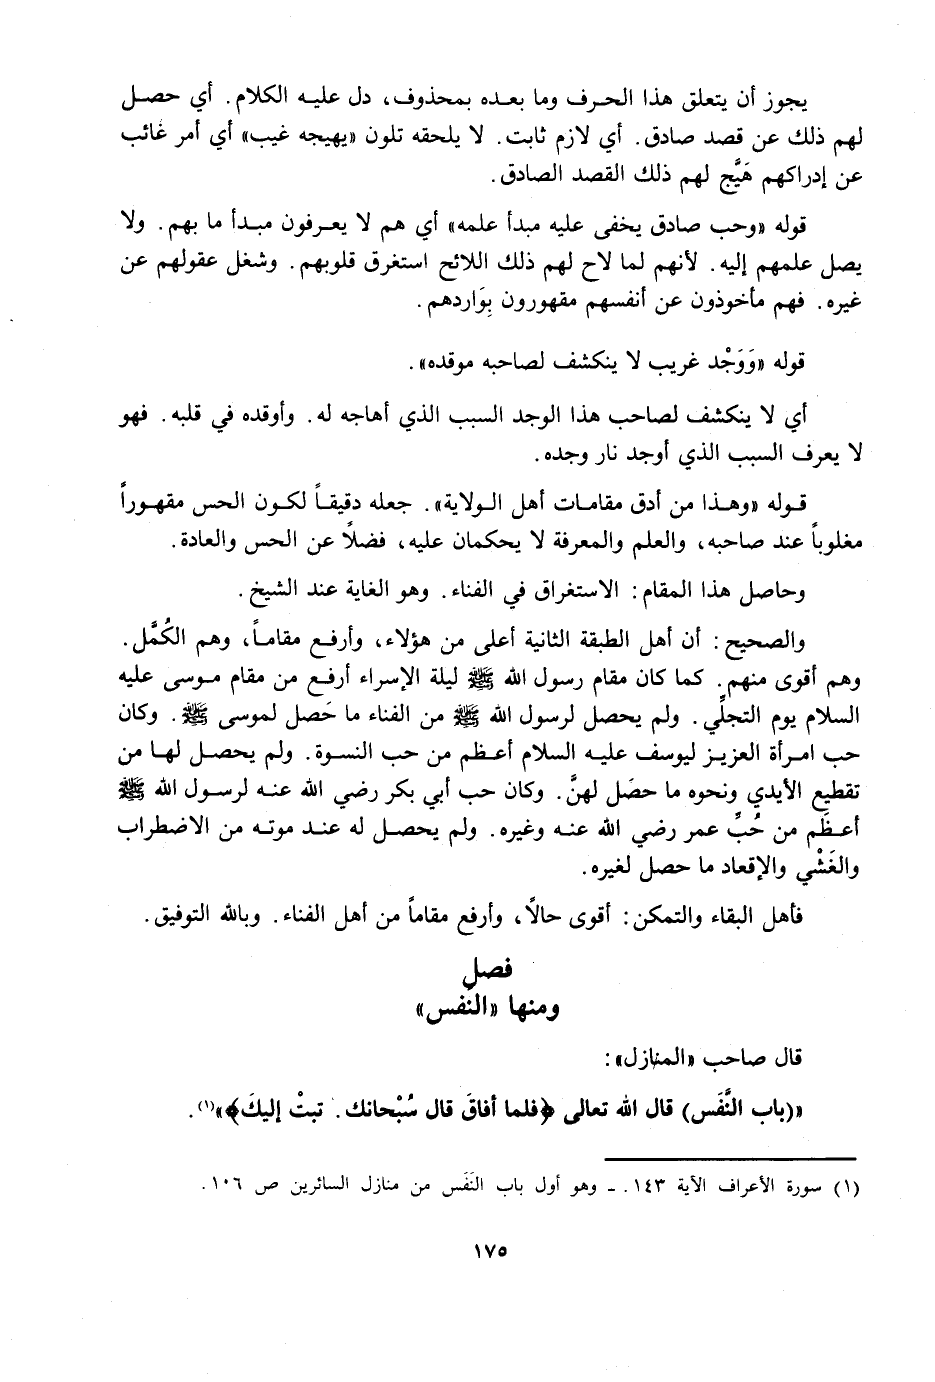 يجوز أن يتعلق هذا الحرف وما بعده بمحذوف، دل عليه الكلام. أي حصل
لهم ذلك عن قصد صادق. أي لازم ثابت. لا يلحقه تلون «يهيجه غيب» أي أمر غائب
عن إدراكهم هَيَّج لهم ذلك القصد الصادق.
قوله «وحب صادق يخفى عليه مبدأ علمه» أي هم لا يعرفون مبدأ ما بهم. ولا
يصل علمهم إليه. لأنهم لما لاح لهم ذلك اللائح استغرق قلوبهم. وشغل عقولهم عن
غيره. فهم مأخوذون عن أنفسهم مقهورون بِوَاردهم.
قوله «وَوَجْد غريب لا ينكشف لصاحبه موقده».
أي لا ينكشف لصاحب هذا الوجد السبب الذي أهاجه له. وأوقده في قلبه. فهو
لا يعرف السبب الذي أوجد نار وجده.
قوله «وهذا من أدق مقامات أهل الولاية». جعله دقيقاً لكون الحس مقهوراً
مغلوباً عند صاحبه، والعلم والمعرفة لا يحكمان عليه، فضلاً عن الحس والعادة.
وحاصل هذا المقام: الاستغراق في الفناء. وهو الغاية عند الشيخ.
والصحيح: أن أهل الطبقة الثانية أعلى من هؤلاء، وأرفع مقاماً، وهم الكُمَّل.
وهم أقوى منهم. كما كان مقام رسول الله ﷺ ليلة الإسراء أرفع من مقام موسى عليه
السلام يوم التجلِّي. ولم يحصل لرسول الله ﷺ من الفناء ما حَصل لموسى ﷺ. وكان
حب امرأة العزيز ليوسف عليه السلام أعظم من حب النسوة. ولم يحصل لها من
تقطيع الأيدي ونحوه ما حصَل لهنَّ. وكان حب أبي بكر رضي الله عنه لرسول الله ﷺ
أعظَم من حُبِّ عمر رضي الله عنه وغيره. ولم يحصل له عند موته من الاضطراب
والغَشْي والإقعاد ما حصل لغيره.
فأهل البقاء والتمكن: أقوى حالاً، وأرفع مقاماً من أهل الفناء. وبالله التوفيق.
فصل
ومنها «النَفس»
قال صاحب «المنازل»:
«(باب النَّفَس) قال الله تعالى ﴿فلما أفاقَ قال سُبْحانك. تبتْ إليكَ﴾»(١).
(١) سورة الأعراف الآية ١٤٣. ـ وهو أول باب النَفَس من منازل السائرين ص ١٠٦.
١٧٥